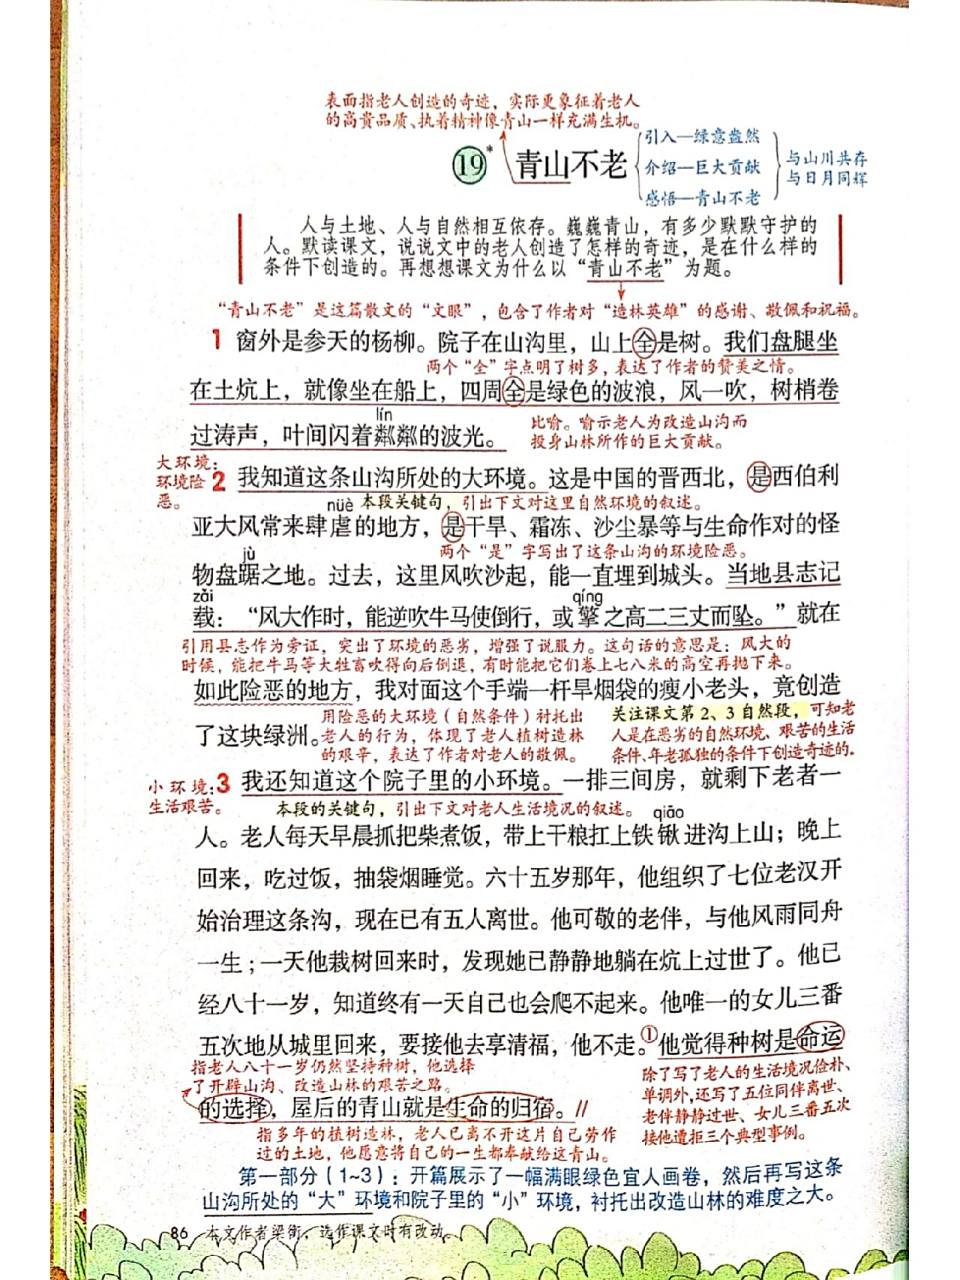 表面指老人创造的奇迹，实际更象征着老人
的高贵品质、执着精神像青山一样充满生机。
19* 青山不老
引入—绿意盎然
介绍—巨大贡献
感悟—青山不老
与山川共存
与日月同辉
人与土地、人与自然相互依存。巍巍青山，有多少默默守护的
人。默读课文，说说文中的老人创造了怎样的奇迹，是在什么样的
条件下创造的。再想想课文为什么以“青山不老”为题。
“青山不老”是这篇散文的“文眼”，包含了作者对“造林英雄”的感谢、敬佩和祝福。
1 窗外是参天的杨柳。院子在山沟里，山上全是树。我们盘腿坐
两个“全”字点明了树多，表达了作者的赞美之情。
在土炕上，就像坐在船上，四周全是绿色的波浪，风一吹，树梢卷
lín
过涛声，叶间闪着粼粼的波光。
比喻。喻示老人为改造山沟而
投身山林所作的巨大贡献。
大环境：
环境险
恶。
2 我知道这条山沟所处的大环境。这是中国的晋西北，是西伯利
nüè 本段关键句，引出下文对这里自然环境的叙述。
亚大风常来肆虐的地方，是干旱、霜冻、沙尘暴等与生命作对的怪
两个“是”字写出了这条山沟的环境险恶。
jù
物盘踞之地。过去，这里风吹沙起，能一直埋到城头。当地县志记
zǎi qíng
载：“风大作时，能逆吹牛马使倒行，或擎之高二三丈而坠。”就在
引用县志作为旁证，突出了环境的恶劣，增强了说服力。这句话的意思是：风大的
时候，能把牛马等大牲畜吹得向后倒退，有时能把它们卷上七八米的高空再抛下来。
如此险恶的地方，我对面这个手端一杆旱烟袋的瘦小老头，竟创造
了这块绿洲。
用险恶的大环境（自然条件）衬托出
老人的行为，体现了老人植树造林
的艰辛，表达了作者对老人的敬佩。
关注课文第2、3自然段，可知老
人是在恶劣的自然环境、艰苦的生活
条件、年老孤独的条件下创造奇迹的。
小环境：
生活艰苦。
3 我还知道这个院子里的小环境。一排三间房，就剩下老者一
本段的关键句，引出下文对老人生活境况的叙述。 qiāo
人。老人每天早晨抓把柴煮饭，带上干粮扛上铁锹进沟上山；晚上
回来，吃过饭，抽袋烟睡觉。六十五岁那年，他组织了七位老汉开
始治理这条沟，现在已有五人离世。他可敬的老伴，与他风雨同舟
一生；一天他栽树回来时，发现她已静静地躺在炕上过世了。他已
经八十一岁，知道终有一天自己也会爬不起来。他唯一的女儿三番
五次地从城里回来，要接他去享清福，他不走。①他觉得种树是命运
指老人八十一岁仍然坚持种树，他选择
了开辟山沟、改造山林的艰苦之路。
的选择，屋后的青山就是生命的归宿。//
指多年的植树造林，老人已离不开这片自己劳作
过的土地，他愿意将自己的一生都奉献给这青山。
除了写了老人的生活境况俭朴、
单调外，还写了五位同伴离世、
老伴静静过世、女儿三番五次
接他遭拒三个典型事例。
第一部分（1~3）：开篇展示了一幅满眼绿色宜人画卷，然后再写这条
山沟所处的“大”环境和院子里的“小”环境，衬托出改造山林的难度之大。
86 本文作者梁衡，选作课文时有改动。